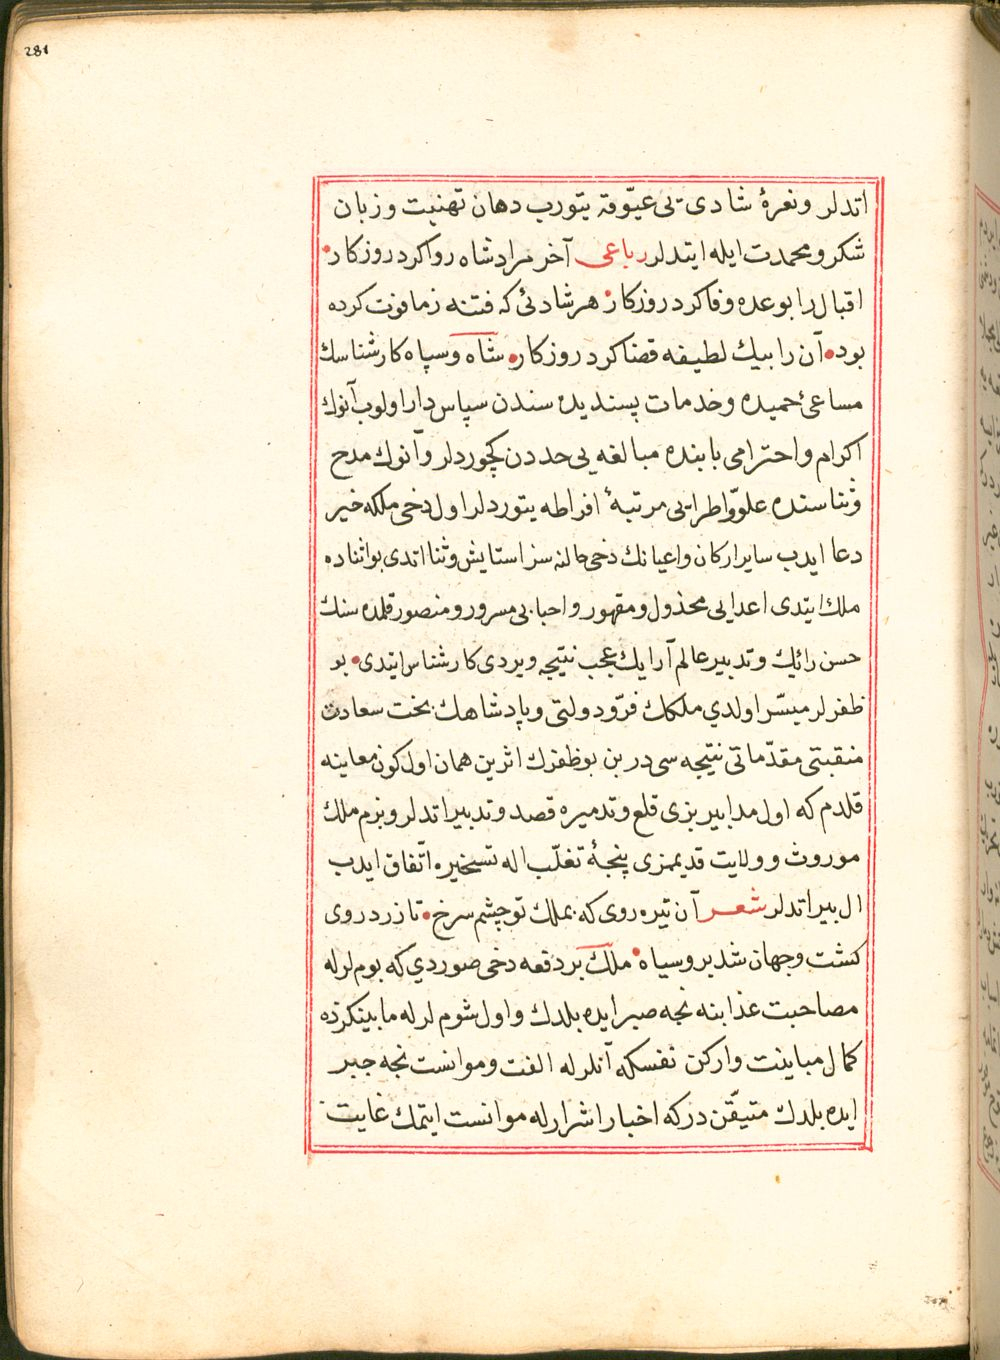 281
اتدلر ونعرهٔ شادی یی عیّوقه یتورب دهان تهنیت وزبان
شکر ومحمدت ایله ایتدلر رباعی آخر مراد شاه روا کرد روزکار
اقبال را بوعده وفا کرد روزکار هر شادئی که فتنه زما فوت کرده
بود آن را بیك لطیفه قضا کرد روزکار شاه وسپاه کارشناسك
مساعیٔ حمیده وخدمات پسندیده سندن سپاس دار اولوب آنوك
اکرام واحترامی بابنده مبالغه یی حددن کچوردلر وآنوك مدح
وثناسنده علوّ واطرایی مرتبهٔ افراطه یتوردلر اول دخی ملکه خیر
دعا ایدب سایر ارکان واعیانك دخی حالنه سزا ستایش وثنا اتدی بو اثناده
ملك ایتدی اعدایی مخذول ومقهور واحبایی مسرور ومنصور قلمده سنك
حسن رائیك وتدبیر عالم آرایك عجب نتیجه ویردی کارشناس ایتدی بو
ظفرلر میسّر اولدی ملکك فرّ ودولتی وپادشاهك بخت سعادت
منقبتی مقدّماتی نتیجه سی در بن بو ظفرك اثرین همان اول کون معاینه
قلدم که اول مدابیر بزی قلع وتدمیره قصد وتدبیر اتدلر وبزم ملك
موروث وولایت قدیممزی پنجهٔ تغلّب اله تسخیره اتّفاق ایدب
ال بیر اتدلر شعر آن تیره روی که بملك تو چشم سرخ تا زرد روی
کشت وجهان شد برو سیاه ملك بر دفعه دخی صوردی که بوم لرله
مصاحبت عذابنه نجه صبر ایده بلدك واول شوم لرله مابینکزده
کمال مباینت وارکن نفسکه آنلرله الفت وموانست نجه جبر
ایده بلدك متیقّن درکه اخیار اشرارله موانست ایتمك غایت